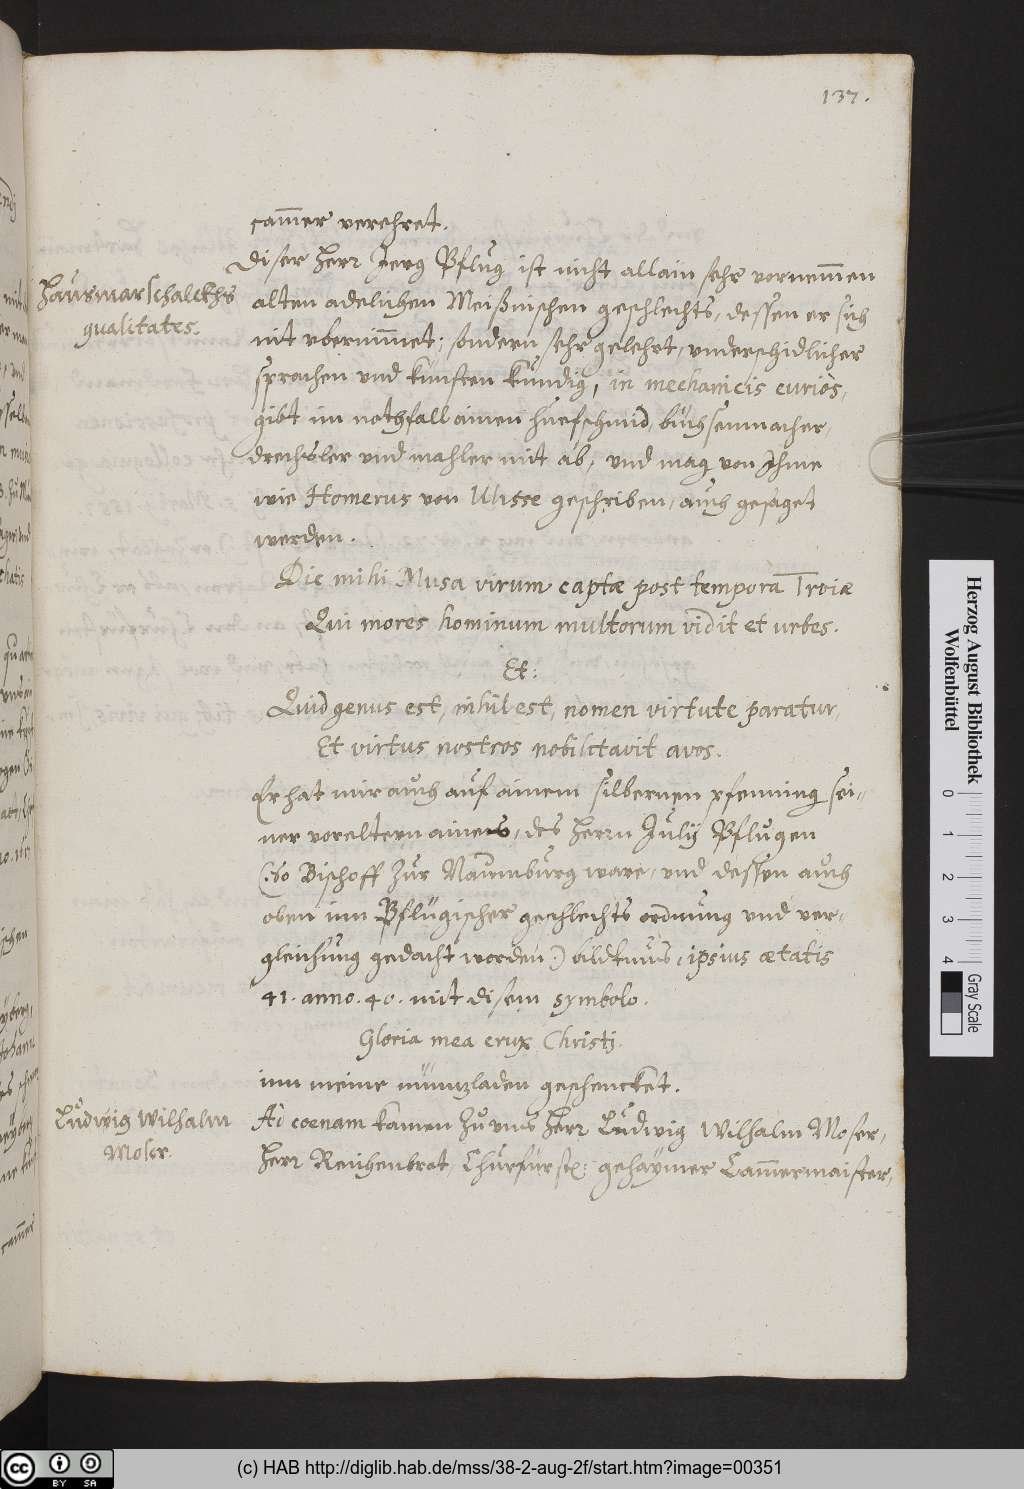 137.
cam̄er verehret.
Diser Herr Jerg Pflug ist nicht allain sehr vornem̄en
Hausmarschalckhs
qualitates.
alten adelichen Meißnischen geschlechts, dessen er sich
nit vbernim̄et; sondern sehr gelehrt, vnderschidlicher
sprachen vnd künsten kündig, in mechanicis curiòs,
gibt im nothfall ainen huefschmid, büchsenmacher,
drechsler vnd mahler mit ab, vnd mag von Ihme
wie Homerus von Ulisse geschriben, auch gesaget
werden.
Dic mihi Musa virum captæ post tempora Troiæ
Qui mores hominum multorum vidit et urbes.
Et:
Quid genus est, nihil est, nomen virtute paratur,
Et virtus nostros nobilitavit avos.
Er hat mir auch auf ainem silbernen pfenning sei-
ner voreltern aines, des Herrn Julij Pflugen
(:so Bischoff zur Naumburg ware, vnd dessen auch
oben inn Pflügischer geschlechts ordnung vnd ver-
gleichung gedacht worden:) bildtnus, ipsius ætatis
41. anno. 40. mit disem symbolo.
Gloria mea crux Christi.
inn meine müntzladen geschencket.
Ludwig Wilhalm
Moser.
Ad coenam kamen zu vns Herr Ludwig Wilhalm Moser,
Herr Reichenbrot, Churfürstl: gehaymer Cam̄ermaister,
Herzog August Bibliothek
Wolfenbüttel
0 1 2 3 4
Gray Scale
cc BY SA
(c) HAB http://diglib.hab.de/mss/38-2-aug-2f/start.htm?image=00351